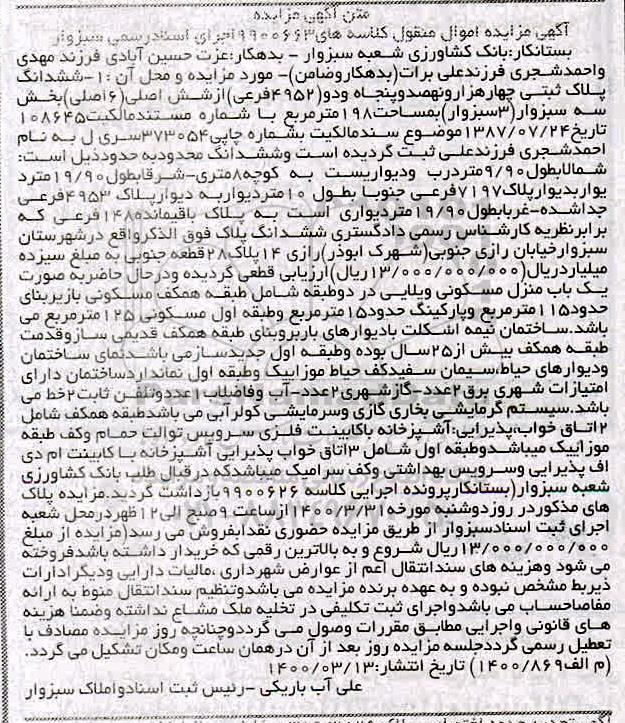 متن آگهی مزایده
آگهی مزایده اموال منقول کلاسه های۹۹۰۰۶۶۳اجرای اسنادرسمی سبزوار
بستانکار:بانک کشاورزی شعبه سبزوار - بدهکار:عزت حسین آبادی فرزند مهدی
واحمدشجری فرزندعلی برات(بدهکاروضامن)- مورد مزایده و محل آن :۱-ششدانگ
پلاک ثبتی چهارهزارونهصدوپنجاه ودو(۴۹۵۲فرعی)ازشش اصلی(۶اصلی)بخش
سه سبزوار(۳سبزوار)بمساحت۱۹۸مترمربع با شماره مستندمالکیت۱۰۸۶۴۵
تاریخ۱۳۸۷/۰۷/۲۴موضوع سندمالکیت بشماره چاپی۳۷۳۰۵۴سری ل به نام
احمدشجری فرزندعلی ثبت گردیده است وششدانگ محدودبه حدودذیل است:
شمالابطول۹/۹۰متردرب ودیواریست به کوچه۸متری-شرقابطول۱۹/۹۰مترد
یواربدیوارپلاک۷۱۹۷فرعی جنوبا بطول ۱۰متردیواربه دیوارپلاک ۴۹۵۳فرعی
جداشده-غربابطول۱۹/۹۰متردیواری است به پلاک باقیمانده۱۴۸فرعی که
برابرنظریه کارشناس رسمی دادگستری ششدانگ پلاک فوق الذکرواقع درشهرستان
سبزوارخیابان رازی جنوبی(شهرک ابوذر)رازی ۱۴پلاک۲۸قطعه جنوبی به مبلغ سیزده
میلیاردریال(۱۳/۰۰۰/۰۰۰/۰۰۰ریال)ارزیابی قطعی گردیده ودرحال حاضربه صورت
یک باب منزل مسکونی ویلایی در دوطبقه شامل طبقه همکف مسکونی بازیربنای
حدود۱۱۵مترمربع وپارکینگ حدود۱۵مترمربع وطبقه اول مسکونی ۱۲۵مترمربع می
باشد.ساختمان نیمه اشکلت بادیوارهای باربروبنای طبقه همکف قدیمی سازوقدمت
طبقه همکف بیش از۲۵سال بوده وطبقه اول جدیدسازمی باشدنمای ساختمان
ودیوارهای حیاط،سیمان سفیدکف حیاط موزاییک وطبقه اول نمانداردساختمان دارای
امتیازات شهری برق۲عدد-گازشهری۲عدد-آب وفاضلاب۱عددوتلفن ثابت۲خط می
باشد.سیستم گرمایشی بخاری گازی وسرمایشی کولرآبی می باشدطبقه همکف شامل
۲اتاق خواب،پذیرایی:آشپزخانه باکابینت فلزی سرویس توالت حمام وکف طبقه
موزاییک میباشدوطبقه اول شامل ۳اتاق خواب پذیرایی آشپزخانه با کابینت ام دی
اف پذیرایی وسرویس بهداشتی وکف سرامیک میباشدکه درقبال طلب بانک کشاورزی
شعبه سبزوار(بستانکارپرونده اجرایی کلاسه ۹۹۰۰۶۲۶بازداشت گردید.مزایده پلاک
های مذکوردر روزدوشنبه مورخه۱۴۰۰/۳/۳۱ازساعت ۹صبح الی۱۲ظهردرمحل شعبه
اجرای ثبت اسنادسبزوار از طریق مزایده حضوری نقدابفروش می رسد(مزایده از مبلغ
۱۳/۰۰۰/۰۰۰/۰۰۰ریال شروع و به بالاترین رقمی که خریدار داشته باشدفروخته
می شود وهزینه های سندانتقال اعم از عوارض شهرداری ،مالیات دارایی ودیگرادارات
ذیربط مشخص نبوده و به عهده برنده مزایده می باشدوتنظیم سندانتقال منوط به ارائه
مفاصاحساب می باشدواجرای ثبت تکلیفی در تخلیه ملک مشاع نداشته وضمنا هزینه
های قانونی واجرایی مطابق مقررات وصول می گرددوچنانچه روز مزایده مصادف با
تعطیل رسمی گرددجلسه مزایده روز بعد از آن درهمان ساعت ومکان تشکیل می گردد.
(م الف۱۴۰۰/۸۶۹) تاریخ انتشار:۱۴۰۰/۰۳/۱۳
علی آب باریکی -رئیس ثبت اسنادواملاک سبزوار